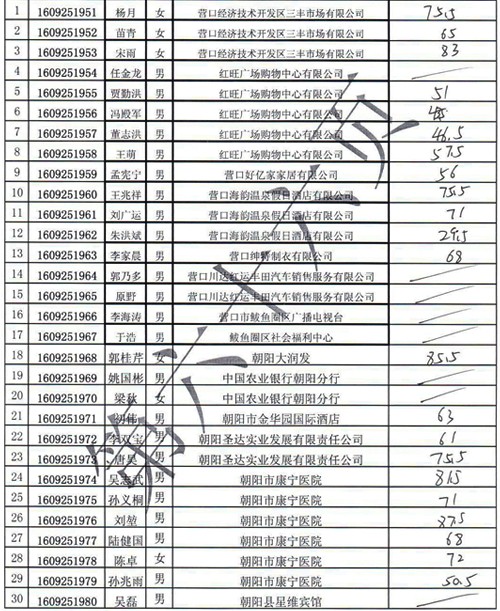 1 1609251951 杨月 女 营口经济技术开发区三丰市场有限公司 75.5
2 1609251952 苗青 女 营口经济技术开发区三丰市场有限公司 65
3 1609251953 宋雨 女 营口经济技术开发区三丰市场有限公司 83
4 1609251954 任金龙 男 红旺广场购物中心有限公司
5 1609251955 贾勤洪 男 红旺广场购物中心有限公司 51
6 1609251956 冯殿军 男 红旺广场购物中心有限公司
7 1609251957 董志洪 男 红旺广场购物中心有限公司 46.5
8 1609251958 王萌 男 红旺广场购物中心有限公司 57.5
9 1609251959 孟宪宁 男 营口好亿家家居有限公司 56
10 1609251960 王兆祥 男 营口海韵温泉假日酒店有限公司 75.5
11 1609251961 刘广运 男 营口海韵温泉假日酒店有限公司 71
12 1609251962 朱洪斌 男 营口海韵温泉假日酒店有限公司 29.5
13 1609251963 李家晨 男 营口绅士制衣有限公司 68
14 1609251964 郭乃多 男 营口川达红运丰田汽车销售服务有限公司
15 1609251965 原野 男 营口川达红运丰田汽车销售服务有限公司
16 1609251966 李海涛 男 营口市鲅鱼圈区广播电视台
17 1609251967 于浩 男 鲅鱼圈区社会福利中心
18 1609251968 郭桂芹 女 朝阳大润发 85.5
19 1609251969 姚国彬 男 中国农业银行朝阳分行
20 1609251970 梁秋 女 中国农业银行朝阳分行
21 1609251971 初伟 男 朝阳市金华园国际酒店 63
22 1609251972 李双宝 男 朝阳圣达实业发展有限责任公司 61
23 1609251973 唐昊 男 朝阳圣达实业发展有限责任公司 75.5
24 1609251974 吴志武 男 朝阳市康宁医院 81.5
25 1609251975 孙义桐 男 朝阳市康宁医院 71
26 1609251976 刘堃 男 朝阳市康宁医院 87.5
27 1609251977 陆健国 男 朝阳市康宁医院 68
28 1609251978 陈卓 女 朝阳市康宁医院 72
29 1609251979 孙兆雨 男 朝阳市康宁医院 50.5
30 1609251980 吴磊 男 朝阳县星维宾馆
第六十六页